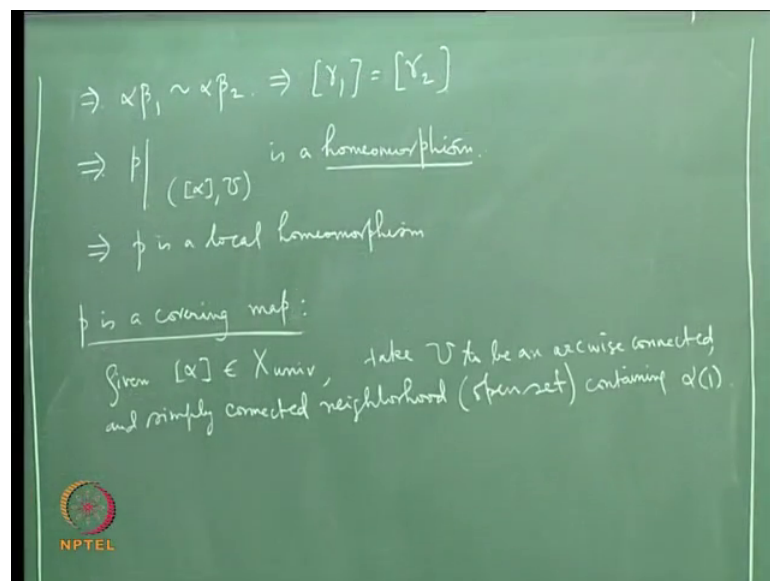 ⇒ αβ₁ ~ αβ₂. ⇒ [γ₁] = [γ₂]
⇒ p|₍[α], U₎ is a homeomorphism.
⇒ p is a local homeomorphism
p is a covering map:
Given [α] ∈ Xuniv, take U to be an arcwise connected,
and simply connected neighborhood (open set) containing α(1).
NPTEL